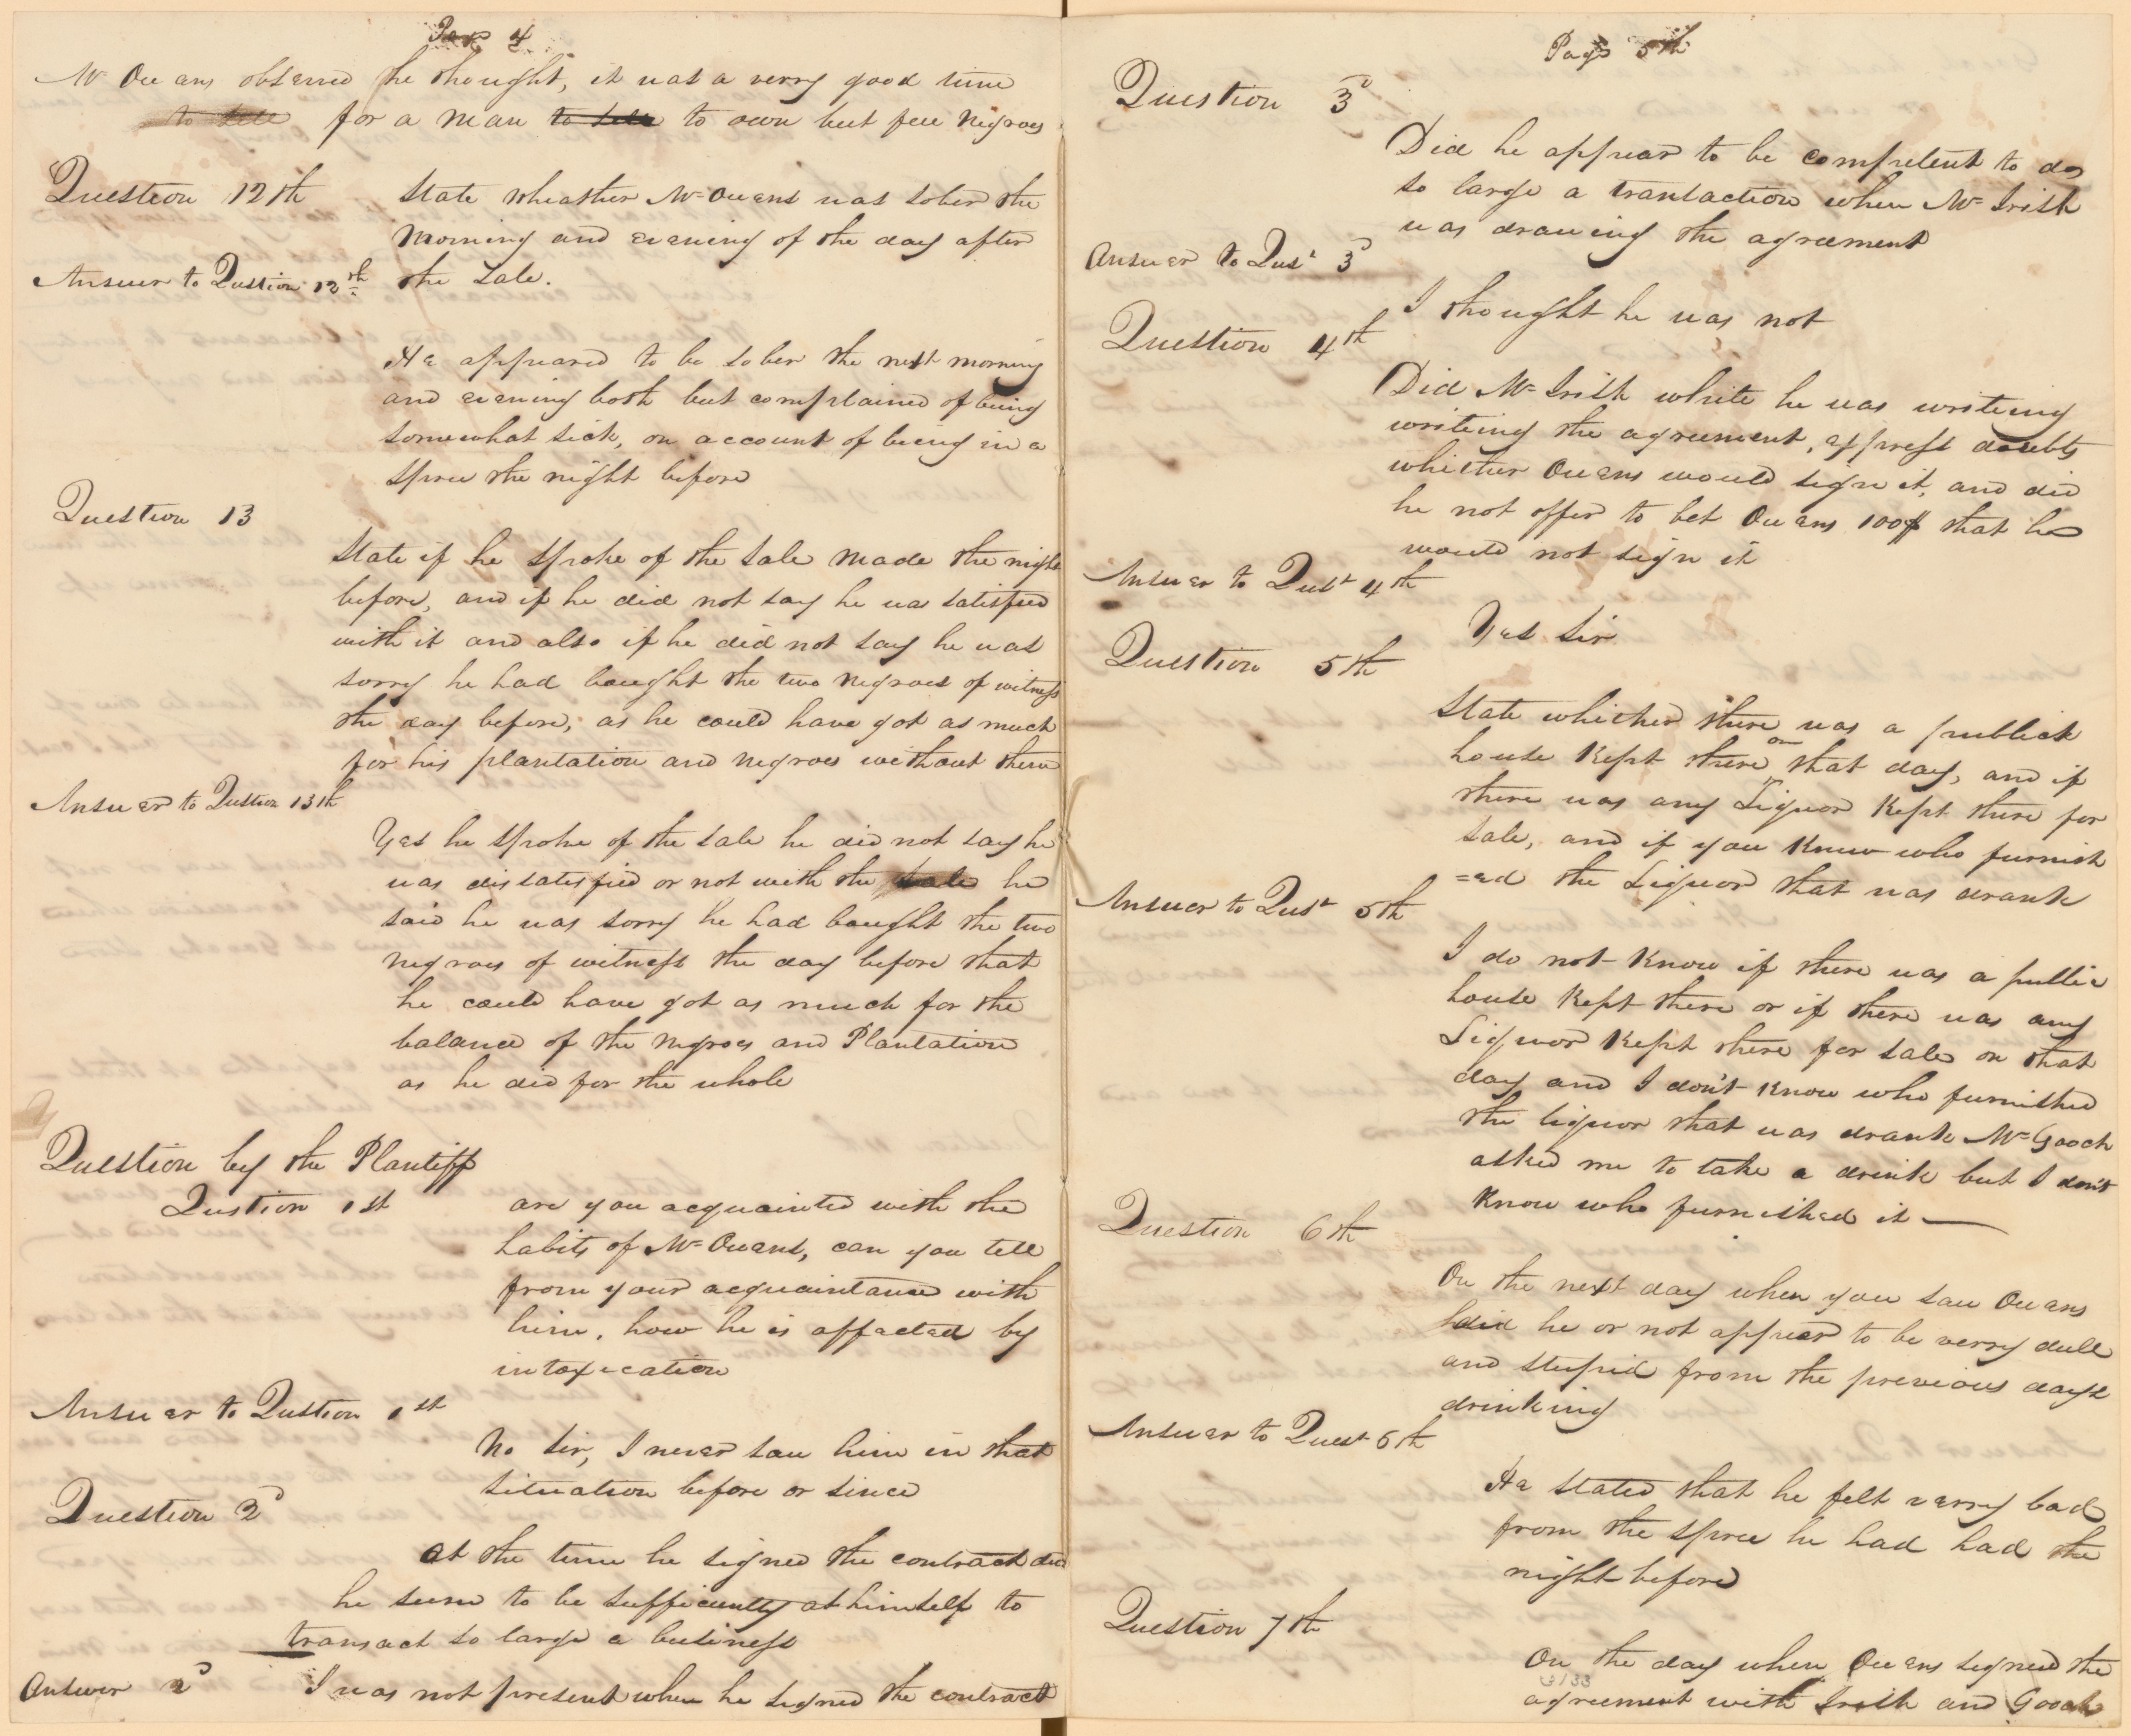 Page 4
Mr Owens observed he thought, it was a verry good time
to sell for a man to sell to own but few Negroes
Question 12th State wheather Mr Owens was sober the
morning and evening of the day after
Answer to Qustion 12th the Sale.
He appeared to be sober the next morning
and evening both but complained of being
somewhat sick, on account of being in a
spree the night before
Question 13
State if he spoke of the Sale made the night
before, and if he did not say he was satisfied
with it and also if he did not say he was
sorry he had bought the two negroes of witness
the day before, as he could have got as much
for his plantation and negroes without them
Answer to Qustion 13th
Yes he spoke of the sale he did not say he
was dissatisfied or not with the Sale he
said he was sorry he had bought the two
negroes of witness the day before that
he could have got as much for the
balance of the negroes and Plantation
as he did for the whole
Question by the Plantiff
Qustion 1st are you acquainted with the
habits of Mr Owens, can you tell
from your acquaintance with
him, how he is affected by
intoxication
Answer to Qustion 1st
No Sir, I never saw him in that
situation before or since
Question 2d
at the time he signed the contract did
he seem to be sufficiently at himself to
transact so large a business
Answer 2d I was not present when he signed the contract
Page 5th
Question 3d
Did he appear to be competent to do
so large a transaction when Mr Irish
was drawing the agreement
Answer to Qust 3d
I thought he was not
Question 4th
Did Mr Irish while he was writing
writing the agreement, express doubts
whether Owens would sign it, and did
he not offer to bet Owens 100$ that he
would not sign it
Answer to Qust 4th
Yes Sir
Question 5th
State whether there was a publick
house Kept there on that day, and if
there was any Liquor Kept there for
sale, and if you Know who furnish
=ed the Liquor that was drank
Answer to Qust 5th
I do not Know if there was a public
house Kept there or if there was any
Liquor Kept there for sale on that
day and I don't Know who furnished
the liquor that was drank Mr Gooch
asked me to take a drink but I don't
Know who furnished it —
Question 6th
On the next day when you saw Owens
did he or not appear to be verry dull
and stupid from the previous days
drinking
Answer to Quest 6th
He stated that he felt verry bad
from the spree he had had the
night before
Question 7th
On the day when Owens signed the
agreement with Irish and Gooch